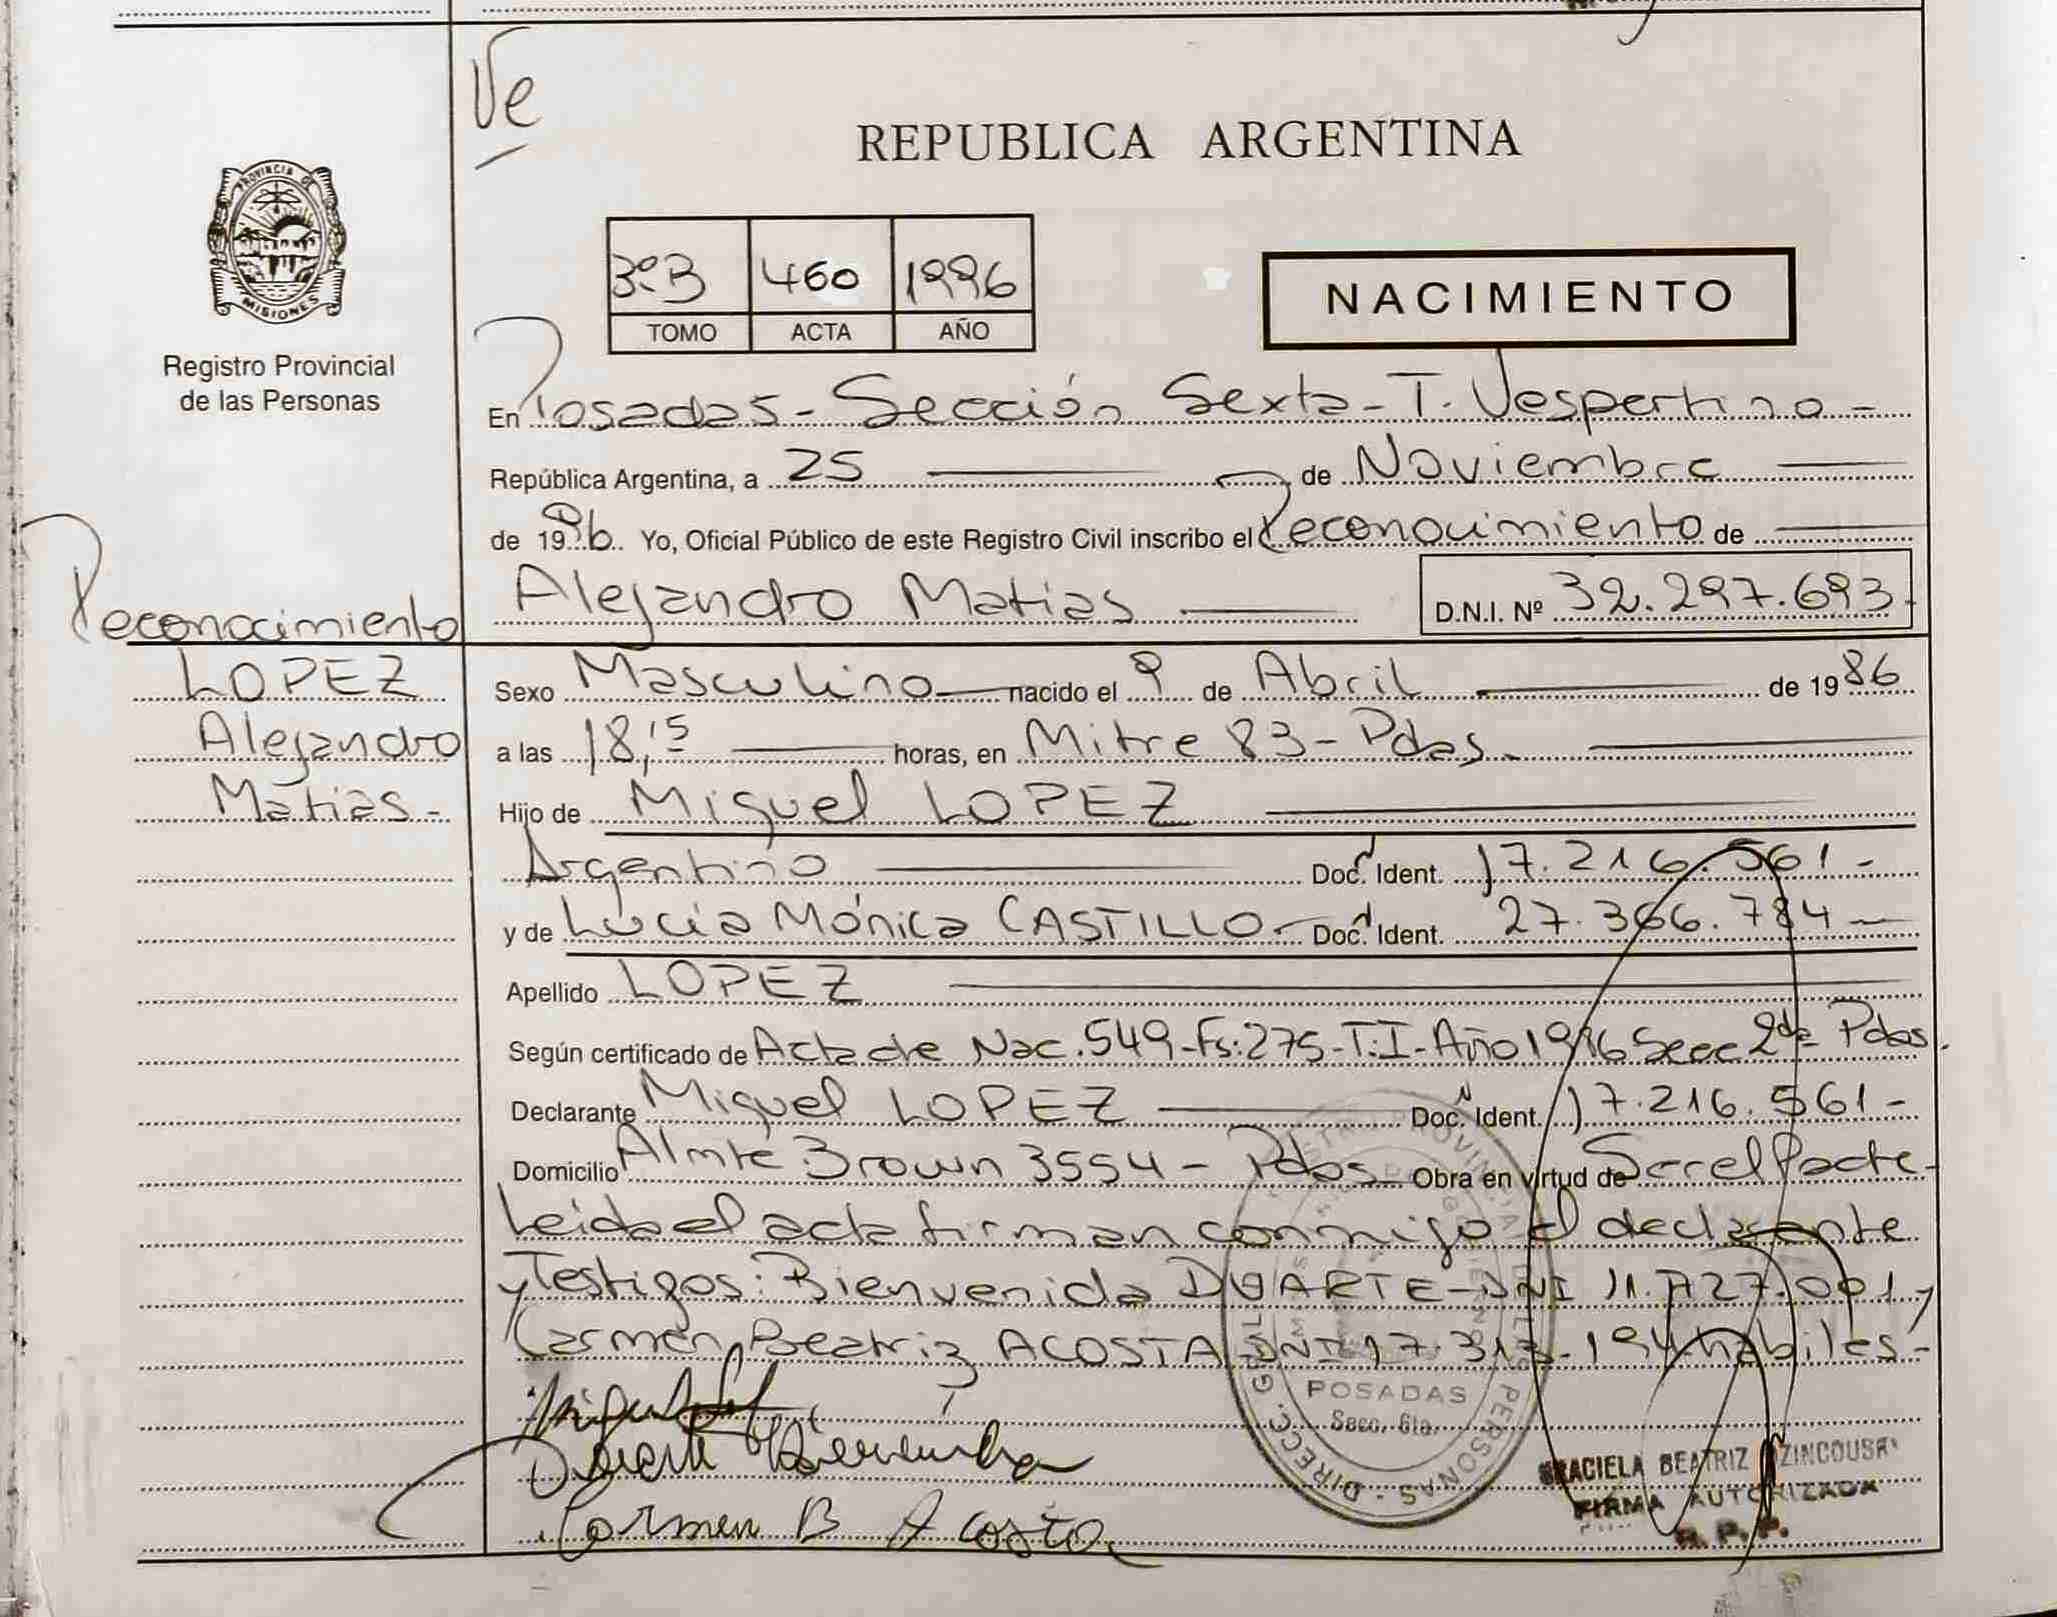 Ve
REPUBLICA ARGENTINA
PROVINCIA DE
MISIONES
Registro Provincial
de las Personas
3º B 460 1996
TOMO ACTA AÑO
NACIMIENTO
En Posadas - Sección Sexta - T. Vespertino -
República Argentina, a 25 de Noviembre
de 1996 Yo, Oficial Público de este Registro Civil inscribo el Reconocimiento de
Alejandro Matias D.N.I. Nº 32.297.693-
Reconocimiento
LOPEZ
Alejandro
Matias -
Sexo Masculino nacido el 9 de Abril de 1986
a las 18,15 horas, en Mitre 83 - Pdas
Hijo de Miguel LOPEZ
Argentino Doc. Ident. 17.216.561 -
y de Lucia Mónica CASTILLO - Doc. Ident. 27.366.784 -
Apellido LOPEZ
Según certificado de Acta de Nac. 549 - Fs: 275 - T: I - Año 1996 Secc 2da Pdas.
Declarante Miguel LOPEZ Doc. Ident. 17.216.561 -
Domicilio Almte Brown 3554 - Pdas Obra en virtud de Ser el
Leida el acta firman conmigo el declarante
y Testigos: Bienvenida DUARTE - DNI 11.727.001 y
Carmen Beatriz ACOSTA DNI 17.313.194 habiles -
Duarte Bienvenida
Carmen B Acosta
POSADAS
Secc. 6ta.
GRACIELA BEATRIZ
FIRMA AUTORIZADA
R. P. P.